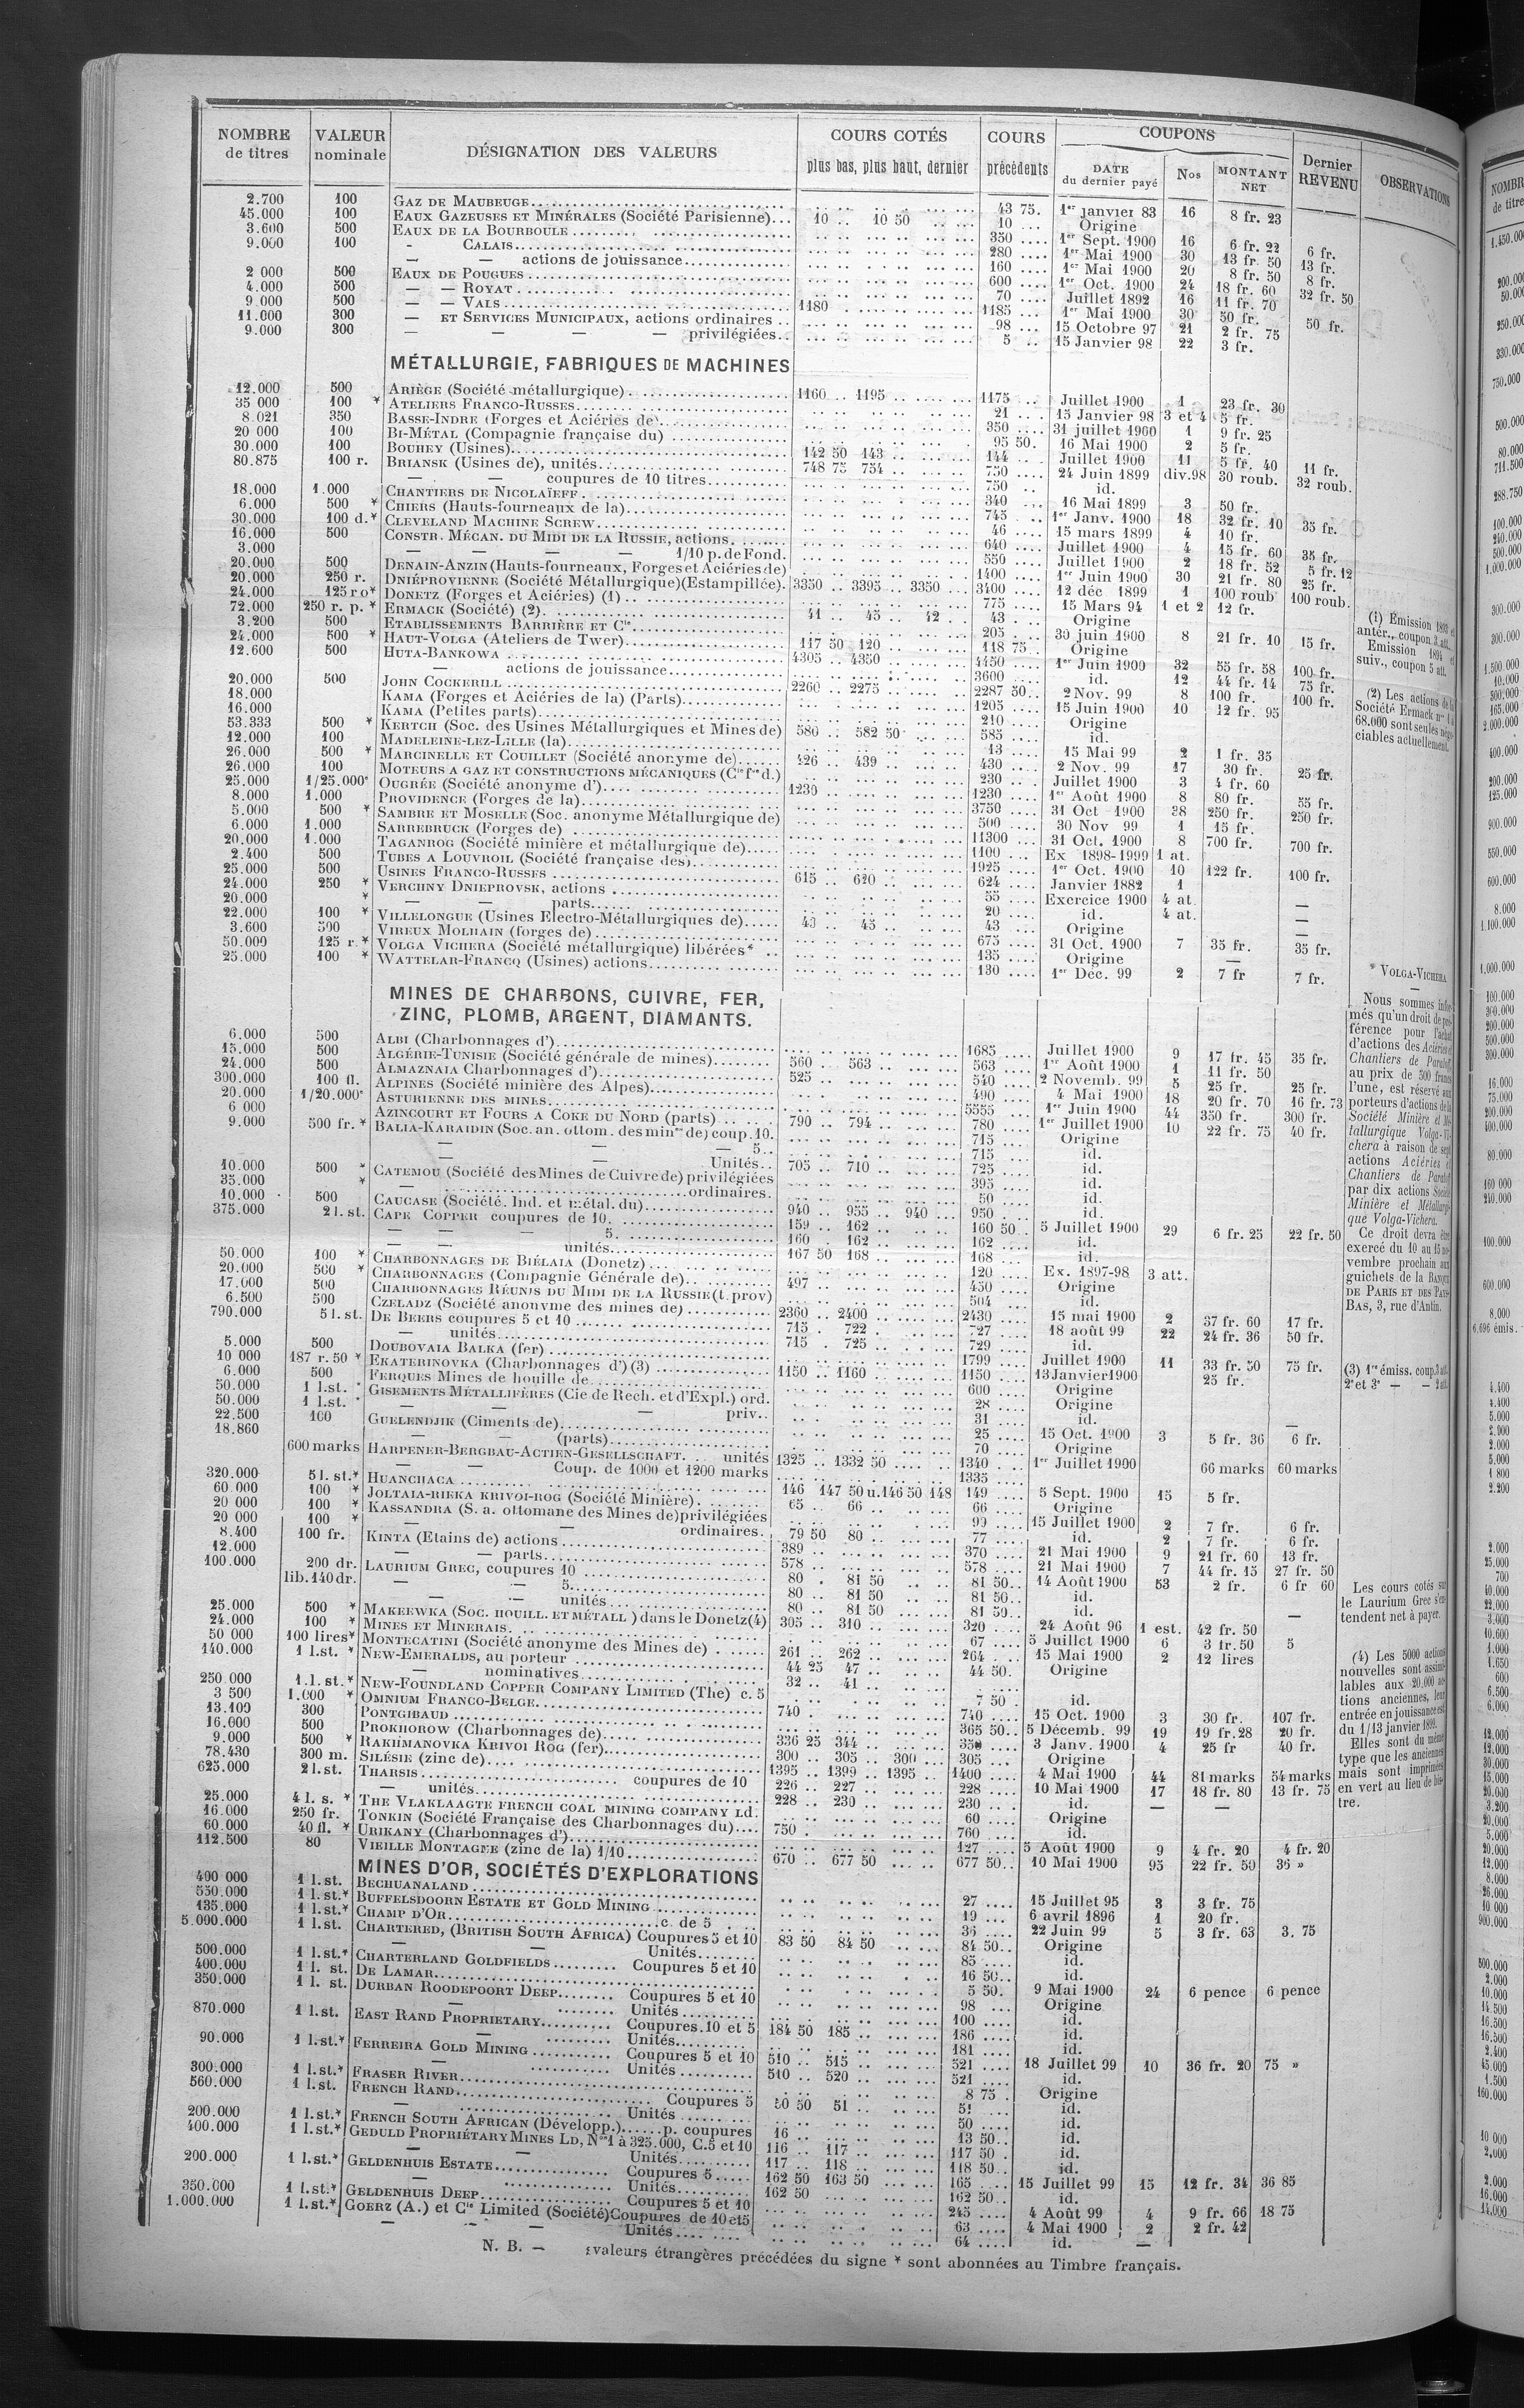 NOMBRE de titres | VALEUR nominale | DÉSIGNATION DES VALEURS | COURS COTÉS plus bas, plus haut, dernier | COURS précédents | COUPONS | Dernier REVENU | OBSERVATIONS
DATE du dernier payé | Nos | MONTANT NET
2.700 100 GAZ DE MAUBEUGE 43 75 1er janvier 83 16 8 fr. 23
45.000 100 EAUX GAZEUSES ET MINÉRALES (Société Parisienne) 10 .. 10 50 10 Origine
3.600 500 EAUX DE LA BOURBOULE 350 1er Sept. 1900 16 6 fr. 22 6 fr.
9.000 100 - CALAIS 280 1er Mai 1900 30 13 fr. 50 13 fr.
— — actions de jouissance 160 1er Mai 1900 20 8 fr. 50 8 fr.
2 000 500 EAUX DE POUGUES 600 1er Oct. 1900 24 18 fr. 60 32 fr. 50
4.000 500 — — ROYAT 70 Juillet 1892 16 11 fr. 70
9.000 500 — — VALS 1180 1185 1er Mai 1900 30 50 fr. 50 fr.
11.000 300 — ET SERVICES MUNICIPAUX, actions ordinaires 98 15 Octobre 97 21 2 fr. 75
9.000 300 — — — — privilégiées 5 15 Janvier 98 22 3 fr.
MÉTALLURGIE, FABRIQUES DE MACHINES
12.000 500 ARIÈGE (Société métallurgique) 1160 .. 1195 1175 Juillet 1900 1 23 fr. 30
35 000 100 * ATELIERS FRANCO-RUSSES 21 15 Janvier 98 3 et 4 5 fr.
8.021 350 BASSE-INDRE (Forges et Aciéries de) 350 31 juillet 1900 1 9 fr. 25
20 000 100 BI-MÉTAL (Compagnie française du) 95 50 16 Mai 1900 2 5 fr.
30.000 100 BOUHEY (Usines) 142 50 143 144 Juillet 1900 11 5 fr. 40 11 fr.
80.875 100 r. BRIANSK (Usines de), unités 748 75 754 750 24 Juin 1899 div.98 30 roub. 32 roub.
— — coupures de 10 titres 750 id.
18.000 1.000 CHANTIERS DE NICOLAÏEFF 340 16 Mai 1899 3 50 fr.
6.000 500 * CHIERS (Hauts-fourneaux de la) 745 1er Janv. 1900 18 32 fr. 10 35 fr.
30.000 100 d.* CLEVELAND MACHINE SCREW 46 15 mars 1899 4 10 fr.
16.000 500 CONSTR. MÉCAN. DU MIDI DE LA RUSSIE, actions 640 Juillet 1900 4 15 fr. 60 35 fr.
3.000 — — — — 1/10 p. de Fond. 550 Juillet 1900 2 18 fr. 52 5 fr. 12
20.000 500 DENAIN-ANZIN (Hauts-fourneaux, Forges et Aciéries de) 1400 1er Juin 1900 30 21 fr. 80 25 fr.
20.000 250 r. DNIÉPROVIENNE (Société Métallurgique)(Estampillée) 3350 .. 3395 .. 3350 3400 12 déc 1899 1 100 roub 100 roub.
24.000 125 ro* DONETZ (Forges et Aciéries) (1) 775 15 Mars 94 1 et 2 12 fr.
72.000 250 r. p. * ERMACK (Société) (2) 41 .. 45 .. 42 43 Origine
3.200 500 ETABLISSEMENTS BARRIÈRE ET Cie 205 30 juin 1900 8 21 fr. 10 15 fr.
24.000 500 * HAUT-VOLGA (Ateliers de Twer) 117 50 120 118 75 Origine
12.600 500 HUTA-BANKOWA 4305 .. 4350 4450 1er Juin 1900 32 55 fr. 58 100 fr.
— actions de jouissance 3600 id. 12 44 fr. 14 75 fr.
20.000 500 JOHN COCKERILL 2260 .. 2275 2287 50 2 Nov. 99 8 100 fr. 100 fr.
18.000 KAMA (Forges et Aciéries de la) (Parts) 1205 15 Juin 1900 10 12 fr. 95
16.000 KAMA (Petites parts) 210 Origine
53.333 500 * KERTCH (Soc. des Usines Métallurgiques et Mines de) 580 .. 582 50 585 id.
12.000 100 MADELEINE-LEZ-LILLE (la) 13 15 Mai 99 2 1 fr. 35
26.000 500 * MARCINELLE ET COUILLET (Société anonyme de) 426 .. 439 430 2 Nov. 99 17 30 fr. 25 fr.
26.000 100 MOTEURS A GAZ ET CONSTRUCTIONS MÉCANIQUES (Cie fse d.) 230 Juillet 1900 3 4 fr. 60
25.000 1/25.000e OUGRÉE (Société anonyme d') 1230 1230 1er Août 1900 8 80 fr. 55 fr.
8.000 1.000 PROVIDENCE (Forges de la) 3750 31 Oct 1900 28 250 fr. 250 fr.
5.000 500 * SAMBRE ET MOSELLE (Soc. anonyme Métallurgique de) 500 30 Nov 99 1 15 fr.
6.000 1.000 SARREBRUCK (Forges de) 11300 31 Oct. 1900 8 700 fr. 700 fr.
20.000 1.000 TAGANROG (Société minière et métallurgique de) 1100 Ex 1898-1999 1 at.
2.400 500 TUBES A LOUVROIL (Société française des) 1925 1er Oct. 1900 10 122 fr. 100 fr.
25.000 500 USINES FRANCO-RUSSES 615 .. 620 624 Janvier 1882 1
24.000 250 * VERCHNY DNIEPROVSK, actions 55 Exercice 1900 4 at. —
20.000 * — — parts 20 id. 4 at. —
22.000 100 * VILLELONGUE (Usines Electro-Métallurgiques de) 43 .. 45 43 Origine —
3.600 500 VIREUX MOLHAIN (forges de) 675 31 Oct. 1900 7 35 fr. 35 fr.
50.000 125 r.* VOLGA VICHERA (Société métallurgique) libérées* 135 Origine —
25.000 100 * WATTELAR-FRANCQ (Usines) actions 130 1er Dec. 99 2 7 fr 7 fr.
MINES DE CHARBONS, CUIVRE, FER,
ZINC, PLOMB, ARGENT, DIAMANTS.
6.000 500 ALBI (Charbonnages d') 1685 Juillet 1900 9 17 fr. 45 35 fr.
15.000 500 ALGÉRIE-TUNISIE (Société générale de mines) 560 .. 563 563 1er Août 1900 1 11 fr. 50
24.000 500 ALMAZNAIA Charbonnages d') 525 540 2 Novemb. 99 5 25 fr. 25 fr.
300.000 100 fl. ALPINES (Société minière des Alpes) 490 4 Mai 1900 18 20 fr. 70 16 fr. 73
20.000 1/20.000e ASTURIENNE DES MINES 5555 1er Juin 1900 44 350 fr. 300 fr.
6 000 AZINCOURT ET FOURS A COKE DU NORD (parts) 790 .. 794 780 1er Juillet 1900 10 22 fr. 75 40 fr.
9.000 500 fr. * BALIA-KARAIDIN (Soc. an. ottom. des mines de) coup. 10. 715 Origine
— — 5 715 id.
— — Unités 705 .. 710 725 id.
10.000 500 * CATEMOU (Société des Mines de Cuivre de) privilégiées 395 id.
35.000 * — ordinaires. 50 id.
10.000 500 CAUCASE (Société. Ind. et métal. du) 940 .. 955 .. 940 950 id.
375.000 2 l. st. CAPE COPPER coupures de 10. 159 .. 162 160 50 5 Juillet 1900 29 6 fr. 25 22 fr. 50
— — — 5. 160 . 162 162 id.
— — unités 167 50 168 168 id.
50.000 100 * CHARBONNAGES DE BIÉLAIA (Donetz) 120 Ex. 1897-98 3 att.
20.000 500 * CHARBONNAGES (Compagnie Générale de) 497 450 Origine
17.000 500 CHARBONNAGES RÉUNIS DU MIDI DE LA RUSSIE (t. prov) 504 id.
6.500 500 CZELADZ (Société anonyme des mines de) 2360 .. 2400 2430 15 mai 1900 2 37 fr. 60 17 fr.
790.000 5 l. st. DE BEERS coupures 5 et 10 715 . 722 727 18 août 99 22 24 fr. 36 50 fr.
— unités 715 . 725 729 id.
5.000 500 DOUBOVAIA BALKA (fer) 1799 Juillet 1900 11 33 fr. 50 75 fr.
10 000 187 r. 50 * EKATERINOVKA (Charbonnages d') (3) 1150 .. 1160 1150 13 Janvier 1900 25 fr.
6.000 500 FERQUES Mines de houille de 600 Origine
50.000 1 l.st. * GISEMENTS MÉTALLIFÈRES (Cie de Rech. et d'Expl.) ord. 28 Origine
50.000 1 l.st. * — — — priv. 31 id. —
22.500 100 GUELENDJIK (Ciments de) 25 15 Oct. 1900 3 5 fr. 36 6 fr.
18.860 — — (parts) 70 Origine
600 marks HARPENER-BERGBAU-ACTIEN-GESELLSCHAFT. unités 1325 .. 1332 50 1340 1er Juillet 1900 66 marks 60 marks
— — Coup. de 1000 et 1200 marks 1335
320.000 5 l. st.* HUANCHACA 146 147 50 u. 146 50 148 149 5 Sept. 1900 15 5 fr.
60.000 100 * JOLTAIA-RIEKA KRIVOI-ROG (Société Minière) 65 .. 66 66 Origine
20 000 100 * KASSANDRA (S. a. ottomane des Mines de) privilégiées 99 15 Juillet 1900 2 7 fr. 6 fr.
20 000 100 * — — ordinaires. 77 id. 2 7 fr. 6 fr.
8.400 100 fr. KINTA (Etains de) actions 79 50 80 370 21 Mai 1900 9 21 fr. 60 13 fr.
12.000 — — parts 389 578 21 Mai 1900 7 44 fr. 15 27 fr. 50
100.000 200 dr. LAURIUM GREC, coupures 10 578 80 . 81 50 81 50 14 Août 1900 53 2 fr. 6 fr 60
lib. 140 dr. — — 5 80 .. 81 50 81 50 id.
— — unités 80 .. 81 50 81 50 id. —
25.000 500 * MAKEEWKA (SOC. HOUILL. ET MÉTALL) dans le Donetz (4) 305 .. 310 320 24 Août 96 1 est. 42 fr. 50
24.000 100 * MINES ET MINERAIS 67 5 Juillet 1900 6 3 fr. 50 5
50 000 100 lires* MONTECATINI (Société anonyme des Mines de) 261 .. 262 264 15 Mai 1900 2 12 lires
140.000 1 l.st. * NEW-EMERALDS, au porteur 44 25 47 44 50 Origine
— nominatives 32 .. 41
250.000 1 l. st.* NEW-FOUNDLAND COPPER COMPANY LIMITED (The) c. 5 7 50 id.
3 500 1.000 * OMNIUM FRANCO-BELGE 740 740 15 Oct. 1900 3 30 fr. 107 fr.
13.109 300 PONTGIBAUD 365 50 5 Décemb. 99 19 19 fr. 28 20 fr.
16.000 500 PROKHOROW (Charbonnages de) 336 25 344 3 Janv. 1900 4 25 fr 40 fr.
9.000 500 * RAKHMANOVKA KRIVOI ROG (fer) 300 .. 305 .. 300 305 Origine
78.430 300 m. SILÉSIE (zinc de) 1395 .. 1399 .. 1395 1400 4 Mai 1900 44 81 marks 54 marks
625.000 2 l. st. THARSIS coupures de 10 226 .. 227 228 10 Mai 1900 17 18 fr. 80 13 fr. 75
— unités 228 .. 230 230 id. — —
25.000 4 l. s. * THE VLAKLAAGTE FRENCH COAL MINING COMPANY LD. 60 Origine
16.000 250 fr. TONKIN (Société Française des Charbonnages du) 750 760 id.
60.000 40 fl. * URIKANY (Charbonnages d') 127 5 Août 1900 9 4 fr. 20 4 fr. 20
112.500 80 VIEILLE MONTAGNE (zinc de la) 1/10 670 .. 677 50 677 50 10 Mai 1900 95 22 fr. 50 36 »
MINES D'OR, SOCIÉTÉS D'EXPLORATIONS
400 000 1 l. st. BECHUANALAND 27 15 Juillet 95 3 3 fr. 75
550.000 1 l. st.* BUFFELSDOORN ESTATE ET GOLD MINING 19 6 avril 1896 1 20 fr.
135.000 1 l. st.* CHAMP D'OR c. de 5 36 22 Juin 99 5 3 fr. 63 3. 75
5.000.000 1 l. st. CHARTERED, (BRITISH SOUTH AFRICA) Coupures 5 et 10 83 50 84 50 84 50 Origine
— — Unités 85 id.
500.000 1 l.st.* CHARTERLAND GOLDFIELDS Coupures 5 et 10 16 50 id.
400.000 1 l. st. DE LAMAR 5 50 9 Mai 1900 24 6 pence 6 pence
350.000 1 l. st. DURBAN ROODEPOORT DEEP Coupures 5 et 10 98 Origine
— Unités 100 id.
870.000 1 l.st. EAST RAND PROPRIETARY Coupures. 10 et 5 184 50 185 186 id.
— Unités 181 id.
90.000 1 l.st.* FERREIRA GOLD MINING Coupures 5 et 10 510 .. 515 521 18 Juillet 99 10 36 fr. 20 75 »
— Unités 510 .. 520 521 id.
300.000 1 l.st.* FRASER RIVER 8 75 Origine
560.000 1 l.st. FRENCH RAND Coupures 5 50 50 51 51 id.
— Unités 50 id.
200.000 1 l.st.* FRENCH SOUTH AFRICAN (Développ.) p. coupures 16 13 50 id.
400.000 1 l.st.* GEDULD PROPRIÉTARY MINES LD, Nos 1 à 325.000, C. 5 et 10 116 .. 117 117 50 id.
— — Unités 117 .. 118 118 50 id.
200.000 1 l.st.* GELDENHUIS ESTATE Coupures 5 162 50 163 50 165 15 Juillet 99 15 12 fr. 34 36 85
— Unités 162 50 162 50 id.
350.000 1 l.st.* GELDENHUIS DEEP Coupures 5 et 10 245 4 Août 99 4 9 fr. 66 18 75
1.000.000 1 l.st.* GOERZ (A.) et Cie Limited (Société) Coupures de 10 et 5 63 4 Mai 1900 2 2 fr. 42
— — — Unités 64 id. —
N. B. — valeurs étrangères précédées du signe * sont abonnées au Timbre français.
(1) Emission 1893 et
antér., coupon 3 att.
Emission 1894 et
suiv., coupon 5 att.
(2) Les actions de la
Société Ermack nos 1 à
68.000 sont seules négo-
ciables actuellement.
* VOLGA-VICHERA
Nous sommes infor-
més qu'un droit de pré-
férence pour l'achat
d'actions des Aciéries et
Chantiers de Paratoff,
au prix de 500 francs
l'une, est réservé aux
porteurs d'actions de la
Société Minière et Mé-
tallurgique Volga-Vi-
chera à raison de sept
actions Aciéries et
Chantiers de Paratoff
par dix actions Société
Minière et Métallurgi-
que Volga-Vichera.
Ce droit devra être
exercé du 10 au 15 no-
vembre prochain aux
guichets de la BANQUE
DE PARIS ET DES PAYS-
BAS, 3, rue d'Antin.
(3) 1re émiss. coup. 3 att.
2e et 3e — — 2 att.
Les cours cotés sur
le Laurium Grec s'en-
tendent net à payer.
(4) Les 5000 actions
nouvelles sont assimi-
lables aux 20.000 ac-
tions anciennes, leur
entrée en jouissance est
du 1/13 janvier 1899.
Elles sont du même
type que les anciennes
mais sont imprimées
en vert au lieu de bis-
tre.